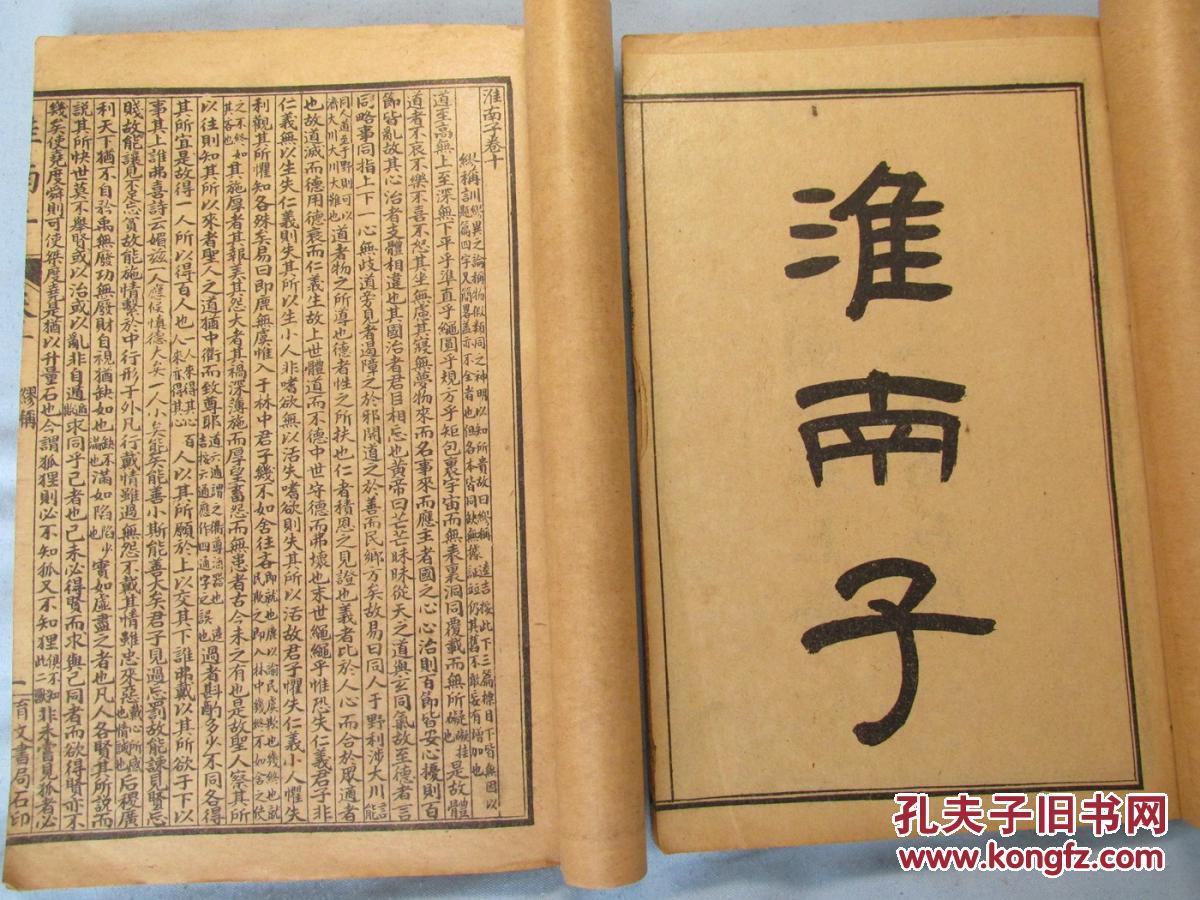 淮南子卷十
繆稱訓
道至高無上至深無下平乎準直乎繩圓乎規方乎矩包裹宇宙而無表裏洞同覆載而無所礙是故體
道者不哀不樂不喜不怒其坐無慮其寢無夢物來而名事來而應主者國之心心治則百節皆安心擾則百
節皆亂故其心治者支體相遺也其國治者君臣相忘也黃帝曰芒芒昧昧從天之道與玄同氣故至德者言
同略事同指上下一心無歧道旁見者遏障之於邪開道之於善而民鄉方矣故易曰同人于野利涉大川
道者物之所導也德者性之所扶也仁者積恩之見證也義者比於人心而合於眾適者
也故道滅而德用德衰而仁義生故上世體道而不德中世守德而弗壞也末世繩繩乎惟恐失仁義君子非
仁義無以生失仁義則失其所以生小人非嗜欲無以活失嗜欲則失其所以活故君子懼失仁義小人懼失
利觀其所懼知各殊矣易曰即鹿無虞惟入于林中君子幾不如舍往吝
其施厚者其報美其怨大者其禍深薄施而厚望畜怨而無患者古今未之有也是故聖人察其所
以往則知其所以來者聖人之道猶中衢而致尊邪過者斟酌多少不同各得
其所宜是故得一人所以得百人也百人以其所願於上以交其下誰弗戴以其所欲于下以
事其上誰弗喜詩云媚茲一人應侯慎德大矣一人小矣能善小斯能善大矣君子見過忘罰故能諫見賢忘
賤故能讓見不足忘貧故能施情繫於中行形于外凡行戴情雖過無怨不戴其情雖忠來惡后稷廣
利天下猶不自矜禹無廢功無廢財自視猶缺如也滿如陷實如虛盡之者也凡人各賢其所說而
說其所快世莫不舉賢或以治或以亂非自遁求同乎己者也己未必得賢而求與己同者而欲得賢亦不
幾矣使堯度舜則可使桀度堯是猶以升量石也今謂狐狸則必不知狐又不知狸非未嘗見狐者必
繆稱
一
育文書局石印
淮南子
孔夫子旧书网
www.kongfz.com